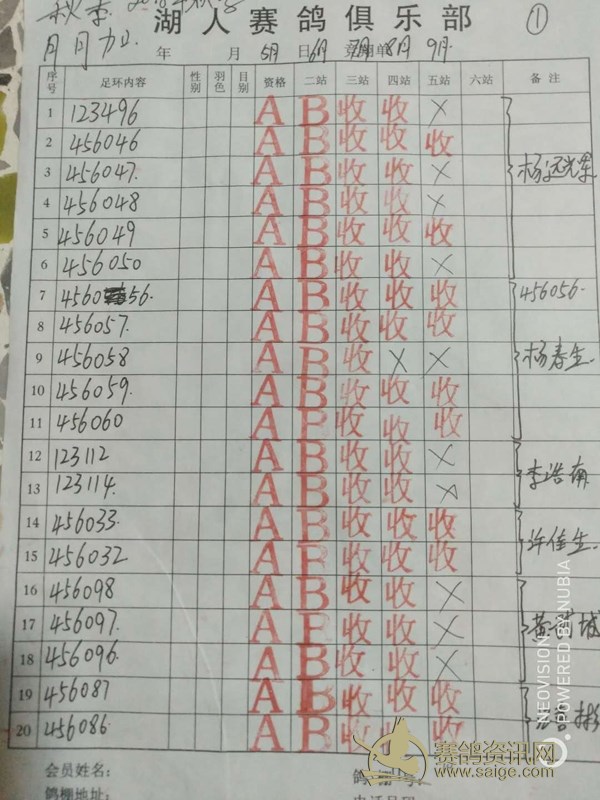 秋季
湖人赛鸽俱乐部 ①
月 年 月 5月 日 6月 8月 9月
序号 足环内容 性别 羽色 目别 资格 二站 三站 四站 五站 六站 备注
1 123496 A B 收 收 ×
2 456046 A B 收 收 收
3 456047. A B 收 收 × 杨远光
4 456048 A B 收 收 ×
5 456049 A B 收 收 收
6 456050 A B 收 收 ×
7 456056. A B 收 收 收 456056.
8 456057. A B 收 收 收
9 456058 A B 收 × × 杨春生.
10 456059. A B 收 收 收
11 456060 A B 收 收 收
12 123112 A B 收 收 × 李浩
13 123114. A B 收 收 ×
14 456033. A B 收 收 收 许佳生.
15 456032 A B 收 收 收
16 456098 A B 收 收 ×
17 456097. A B 收 收 × 黄 城
18 456096. A B 收 收 ×
19 456087 A B 收 收 收
20 456086. A B 收 收 收
会员姓名:
鸽棚地址:
NEOVISION
POWERED BY NUBIA
赛鸽资讯网
www.saige.com